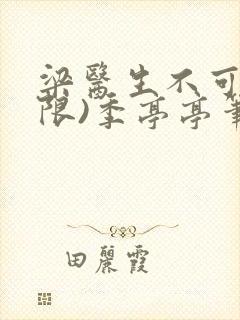 梁醫生不可
限)季亭亭
田麗霞